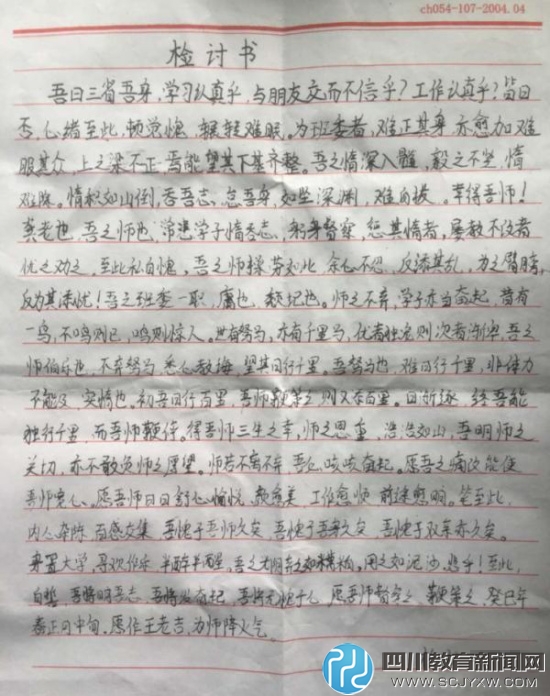 ch054-107-2004.04
检讨书
吾日三省吾身，学习认真乎，与朋友交而不信乎？工作认真乎？皆曰
否，心绪至此，顿觉愧，辗转难眠。为班委者，难正其身亦愈加难
服其众，上之梁不正焉能望其下甚齐整。吾之惰深入髓，毅之不坐，惰
难除。惰积如山倒，吞吾志，怠吾身，如坠深渊，难自拔。幸得吾师！
龚老也，吾之师也，常悲学子惰丧志，躬身督察，惩其惰者，屡教不改者
优之劝之，至此私自愧。吾之师操劳如此，余心不忍，反添其乱，为之臂膀，
反为其添忧！吾之班委一职，腐也，
师之不弃，学子亦当奋起，昔有
一鸟，不鸣则已，鸣则惊人。世有驽马，亦有千里马，优者独宠则次者渐卑，吾之
师伯乐也，不弃驽马，悉心教诲，望其日行千里。吾驽马也，难日行千里，非体力
不能及，实惰也。初吾日行百里，吾师鞭策之则又存百里。日渐逐，终吾能
独行千里，而吾师鞭侍。得吾师三生之幸，师之恩重，浩浩如山，吾明师之
关切，亦不敢负师之厚望。师若不离不弃，吾必咳咳奋起。愿吾之痛改能使
吾师宽心。愿吾师日日舒心愉悦，
工作愈顺，前途愈明。笔至此，
内心杂陈，百感交集，吾愧于吾师久矣，吾愧于吾身久矣，吾愧于双亲亦久矣。
身置大学，寻欢作乐，半醉半醒，吾之光阴
用之如泥沙，悲乎！至此，
自誓，吾将明吾志，吾将发奋起，吾将无愧于心，愿吾师督察之，鞭策之，癸巳年
春正月中旬，愿作王老吉，为师降火气。
四川教育新闻网
WWW.SCJYXW.COM